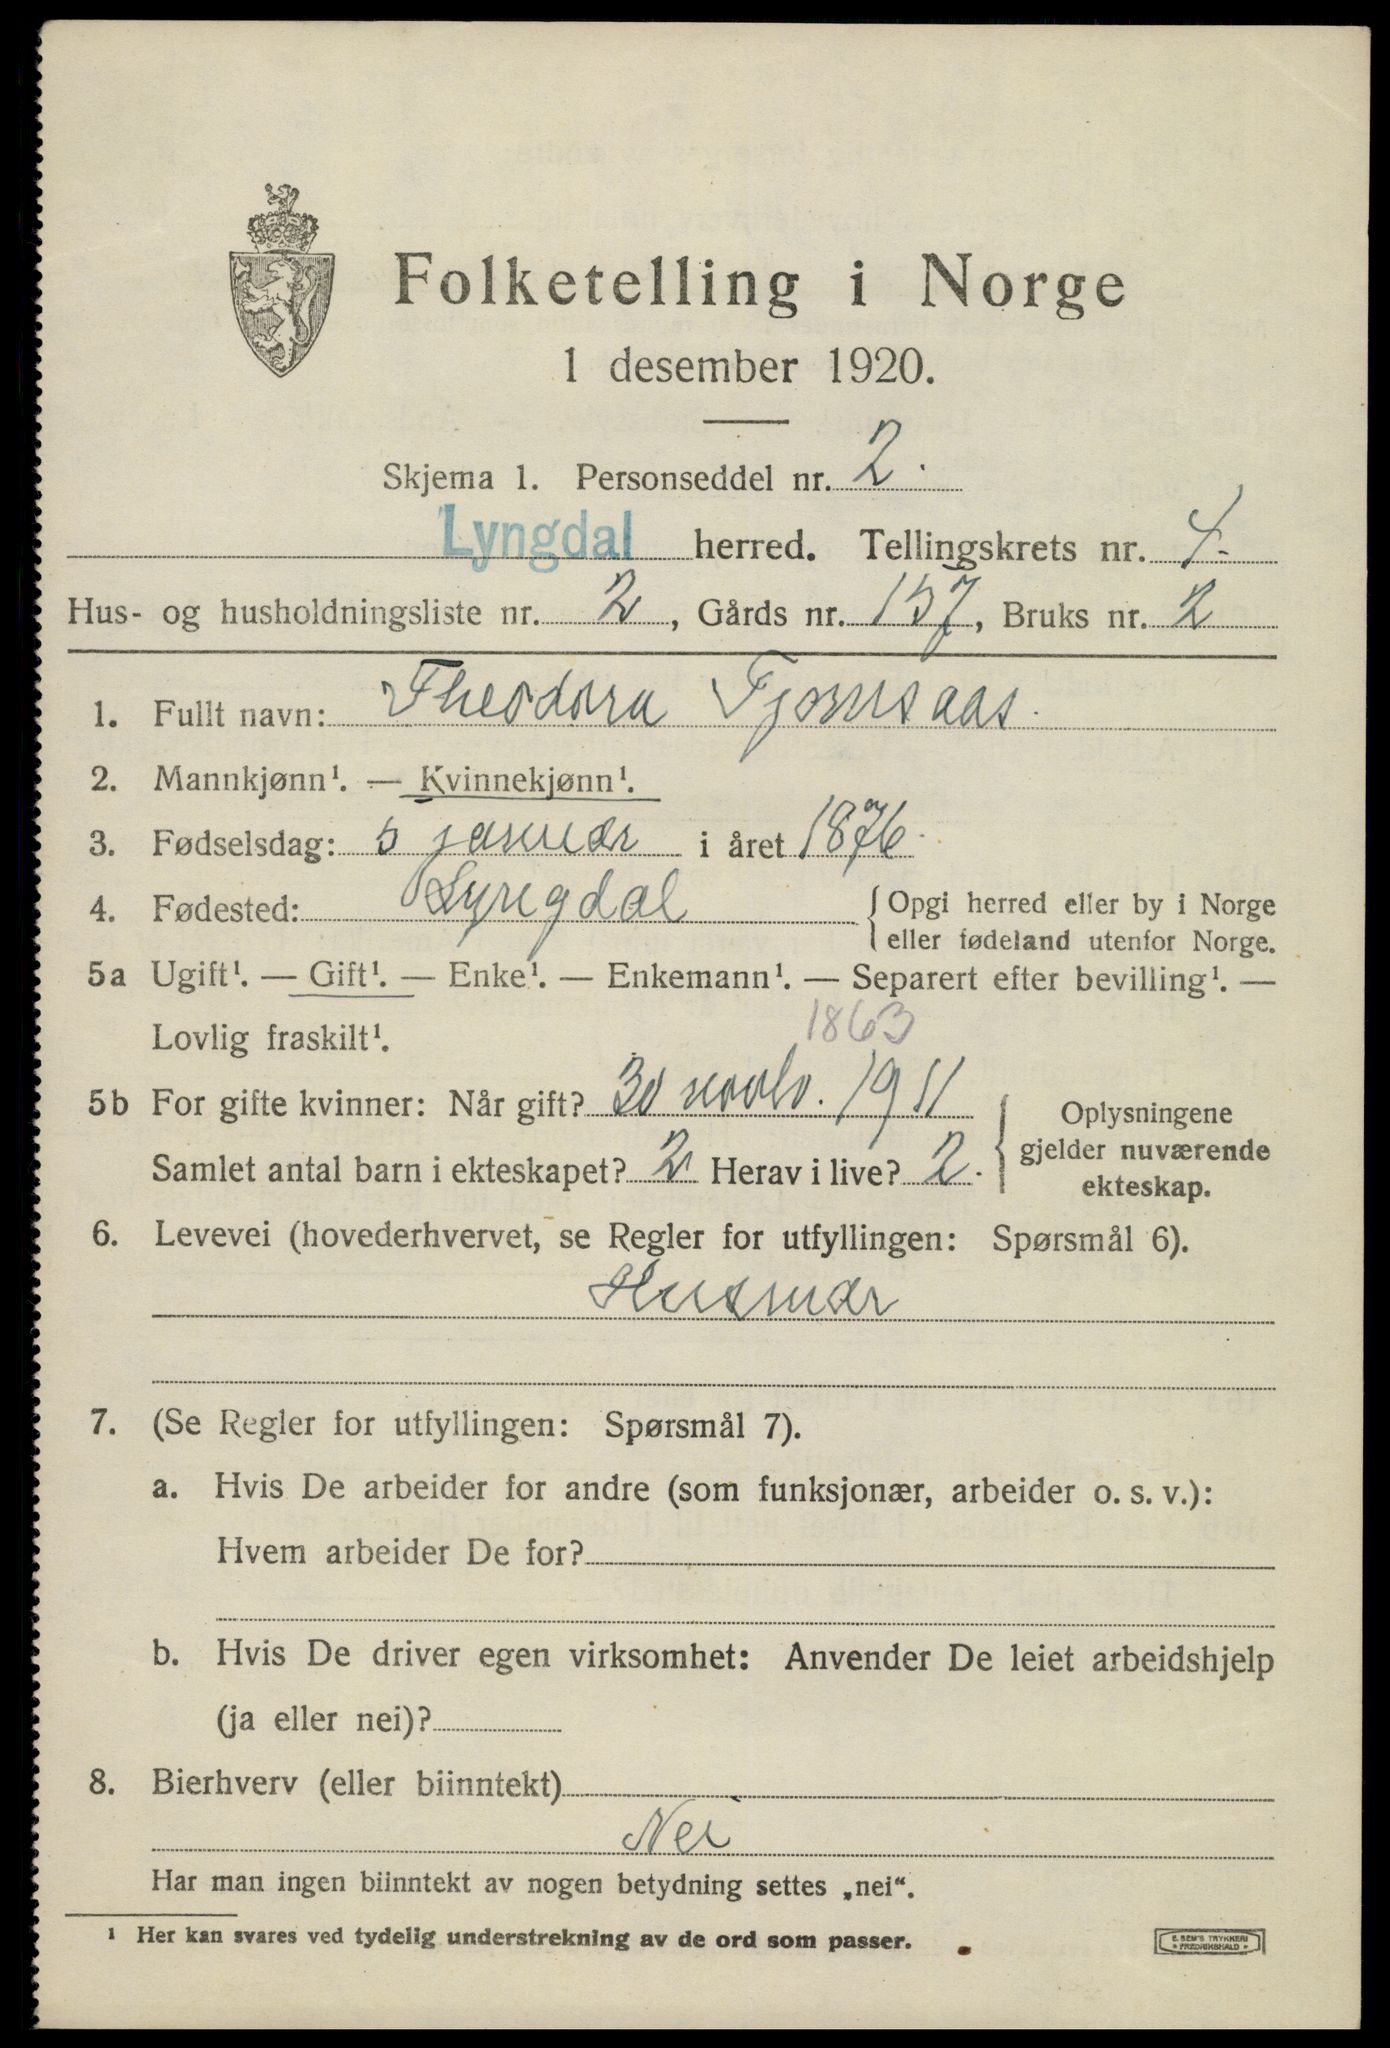 Folketelling i Norge
1 desember 1920.
Skjema 1. Personseddel nr. 2.
Lyngdal herred. Tellingskrets nr. 4.
Hus- og husholdningsliste nr. 2, Gårds nr. 157, Bruks nr. 2
1. Fullt navn: Theodora
2. Mannkjønn¹. — Kvinnekjønn¹.
3. Fødselsdag: 5 januar i året 1876.
4. Fødested: Lyngdal { Opgi herred eller by i Norge
eller fødeland utenfor Norge.
5a Ugift¹. — Gift¹. — Enke¹. — Enkemann¹. — Separert efter bevilling¹. —
Lovlig fraskilt¹.
1863
5b For gifte kvinner: Når gift? 30 novbr. 1911
Samlet antal barn i ekteskapet? 2 Herav i live? 2.
{ Oplysningene
gjelder nuværende
ekteskap.
6. Levevei (hovederhvervet, se Regler for utfyllingen: Spørsmål 6).
Husmor
7. (Se Regler for utfyllingen: Spørsmål 7).
a. Hvis De arbeider for andre (som funksjonær, arbeider o. s. v.):
Hvem arbeider De for?
b. Hvis De driver egen virksomhet: Anvender De leiet arbeidshjelp
(ja eller nei)?
8. Bierhverv (eller biinntekt)
Nei
Har man ingen biinntekt av nogen betydning settes „nei“.
¹ Her kan svares ved tydelig understrekning av de ord som passer.
E. SEM'S TRYKKERI
* FREDRIKSHALD *